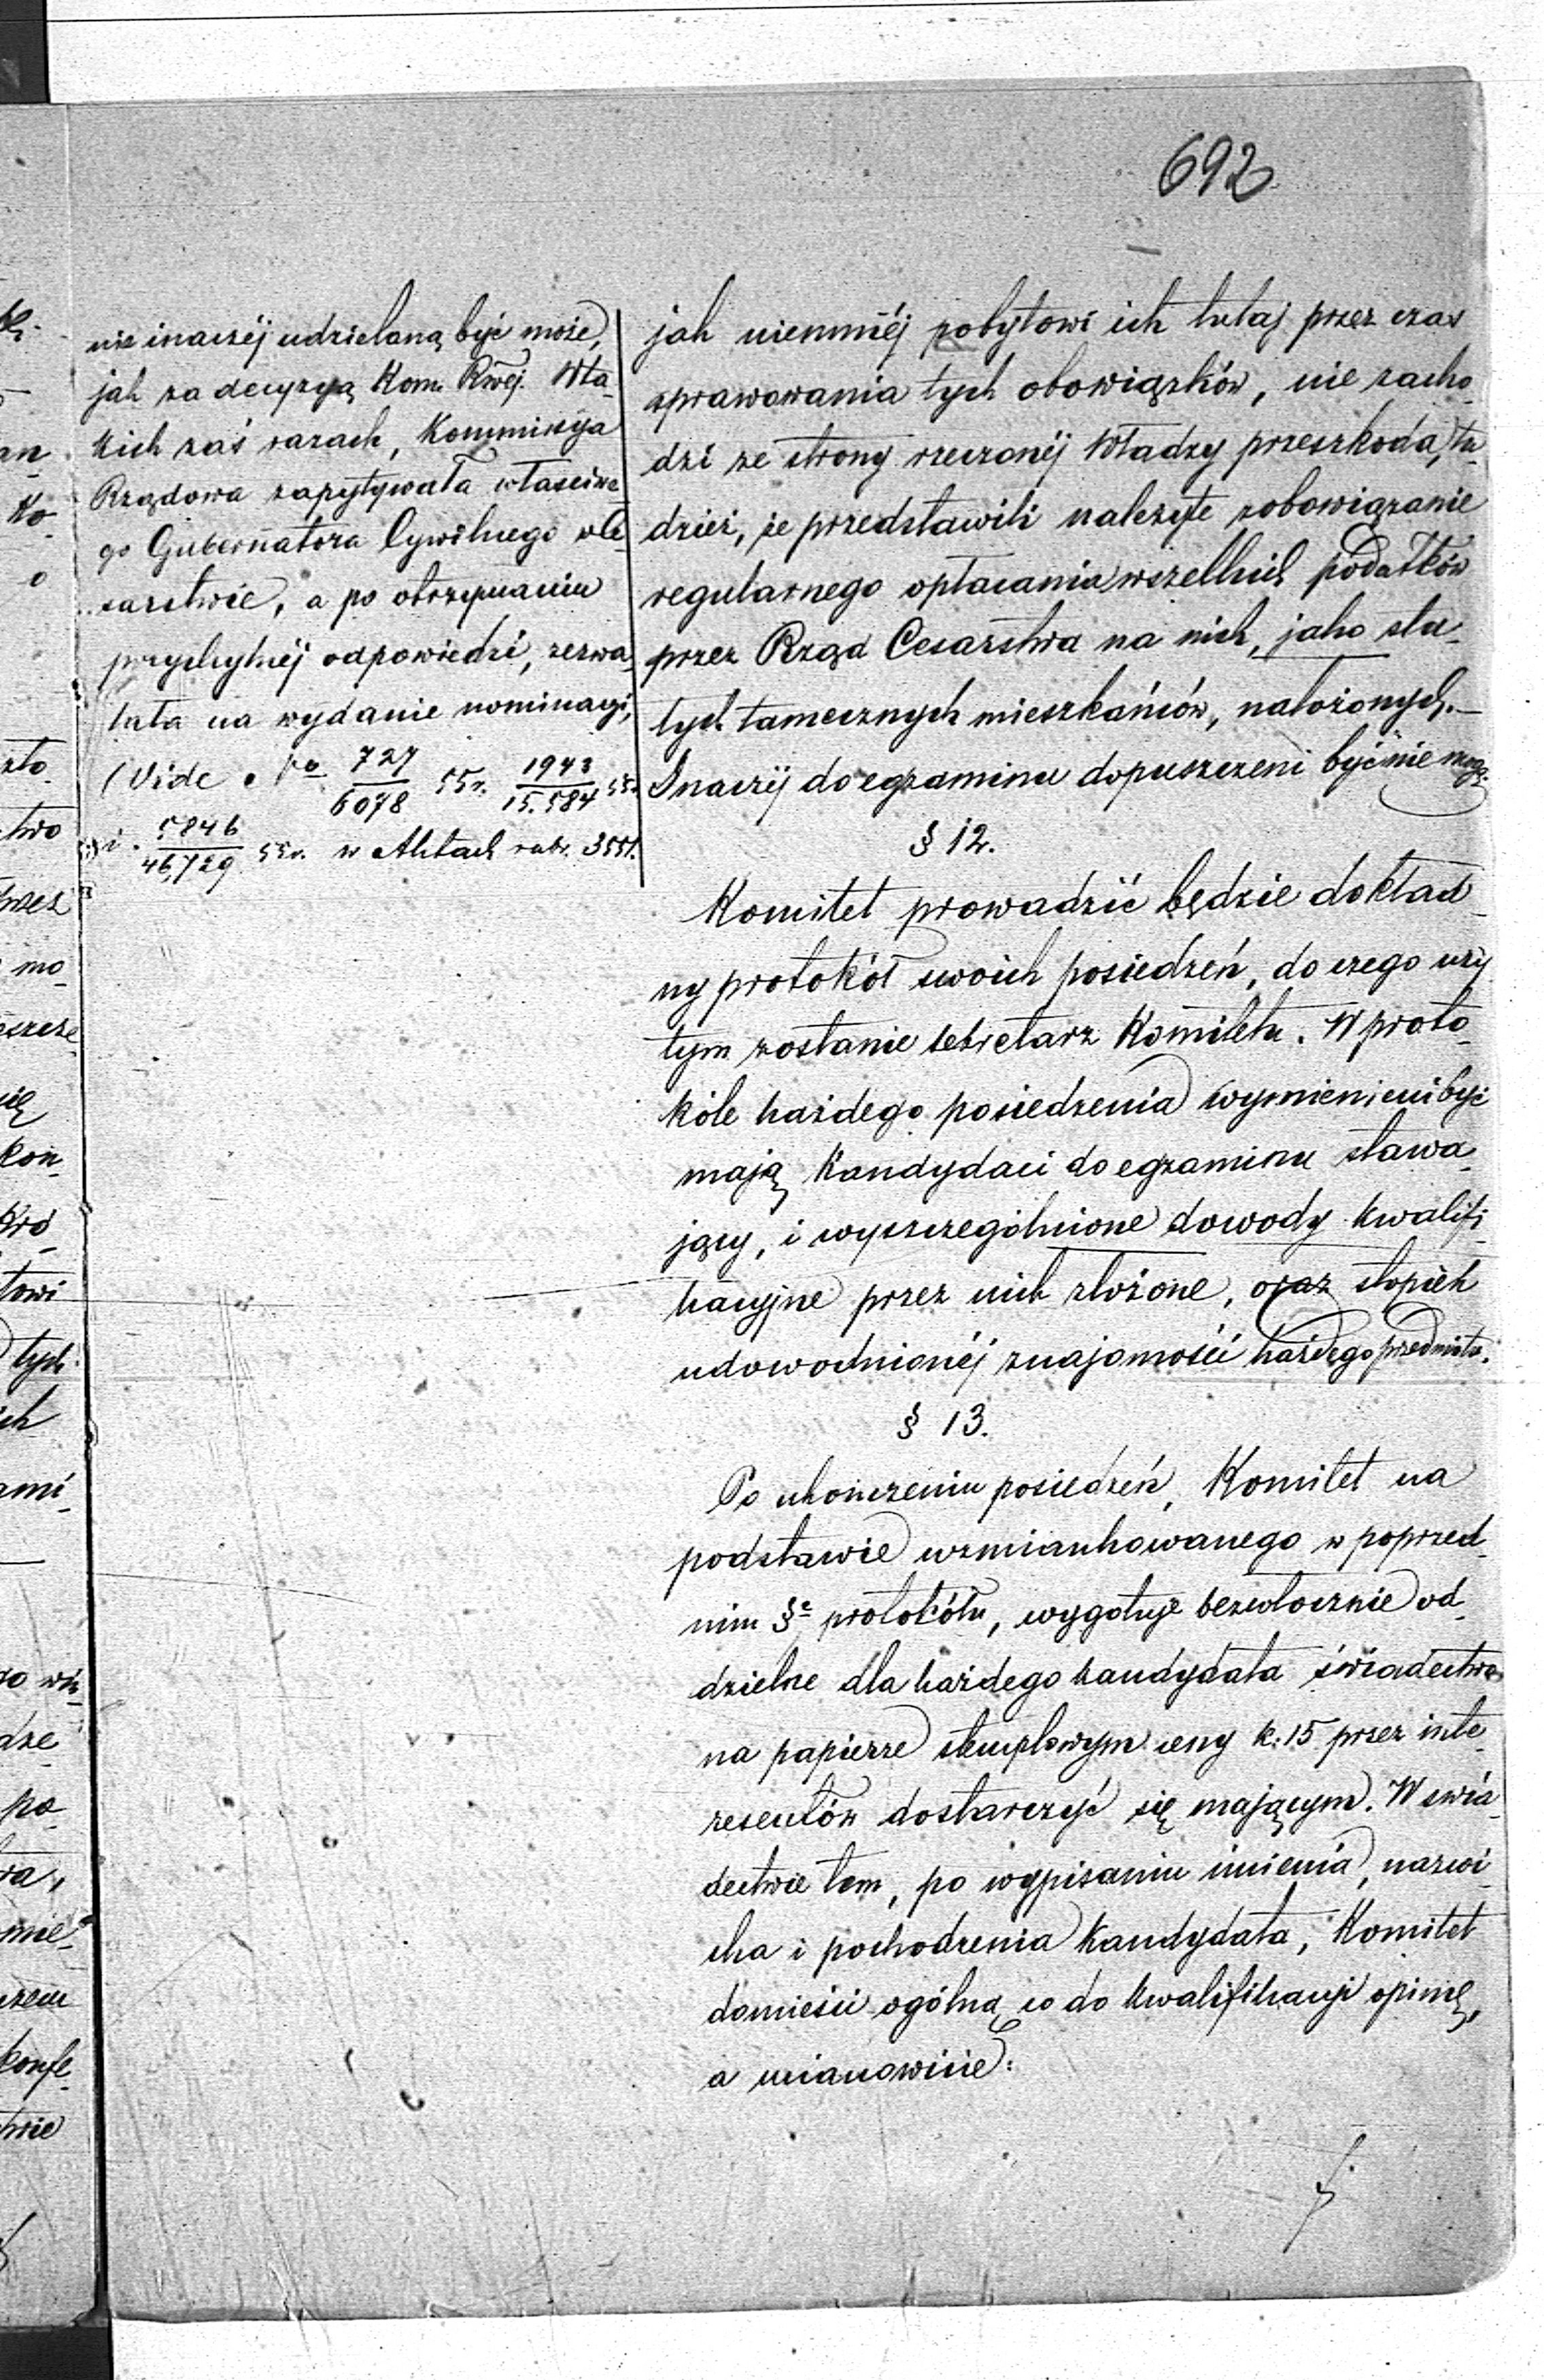 692
nie inaczéj udzielaną być może,
jak za decyzyą Kom. Rwéj. W ta-
kich zaś razach, Kommissya
Rządowa zapytywała właściwe-
go Gubernatora Cywilnego w Ce-
sarstwie, a po otrzymaniu
przychylnéj odpowiedzi, zezwa-
lała na wydanie nominacyi,
(Vide 727/6078 55 r. 1943/15.584 55 r.
i 5846/46,729 55 r. w Aktach rubr. 3551.
jak niemniéj pobytowi ich tutaj przez czas
sprawowania tych obowiązków, nie zacho-
dzi ze strony rzeczonéj Władzy przeszkoda, tu-
dzież, że przedstawili należyte zobowiązanie
regularnego opłacania wszelkich podatków
przez Rząd Cesarstwa na nich, jako sta-
łych tamecznych mieszkańców, nałożonych.—
Inaczéj do egzaminu dopuszczeni być nie mogą.
§ 12.
Komitet prowadzić będzie dokład-
ny protokół swoich posiedzeń, do czego uży-
tym zostanie sekretarz Komitetu. W proto-
kóle każdego posiedzenia wymienieni być
mają kandydaci do egzaminu stawa-
jący, i wyszczególnione dowody kwalifi-
kacyjne przez nich złożone, oraz stopień
udowodnionéj znajomości każdego przedmiotu.
§ 13.
Po ukończeniu posiedzeń, Komitet na
podstawie wzmiankowanego w poprzed-
nim §e protokółu, wygotuje bezwłocznie od-
dzielne dla każdego kandydata świadectwo
na papierze stemplowym ceny k: 15 przez inte-
resentów dostarczyć się mającym. W świa-
dectwie tem, po wypisaniu imienia, nazwi-
ska i pochodzenia kandydata, Komitet
domieści ogólną co do kwalifikacyi opinię,
a mianowicie: